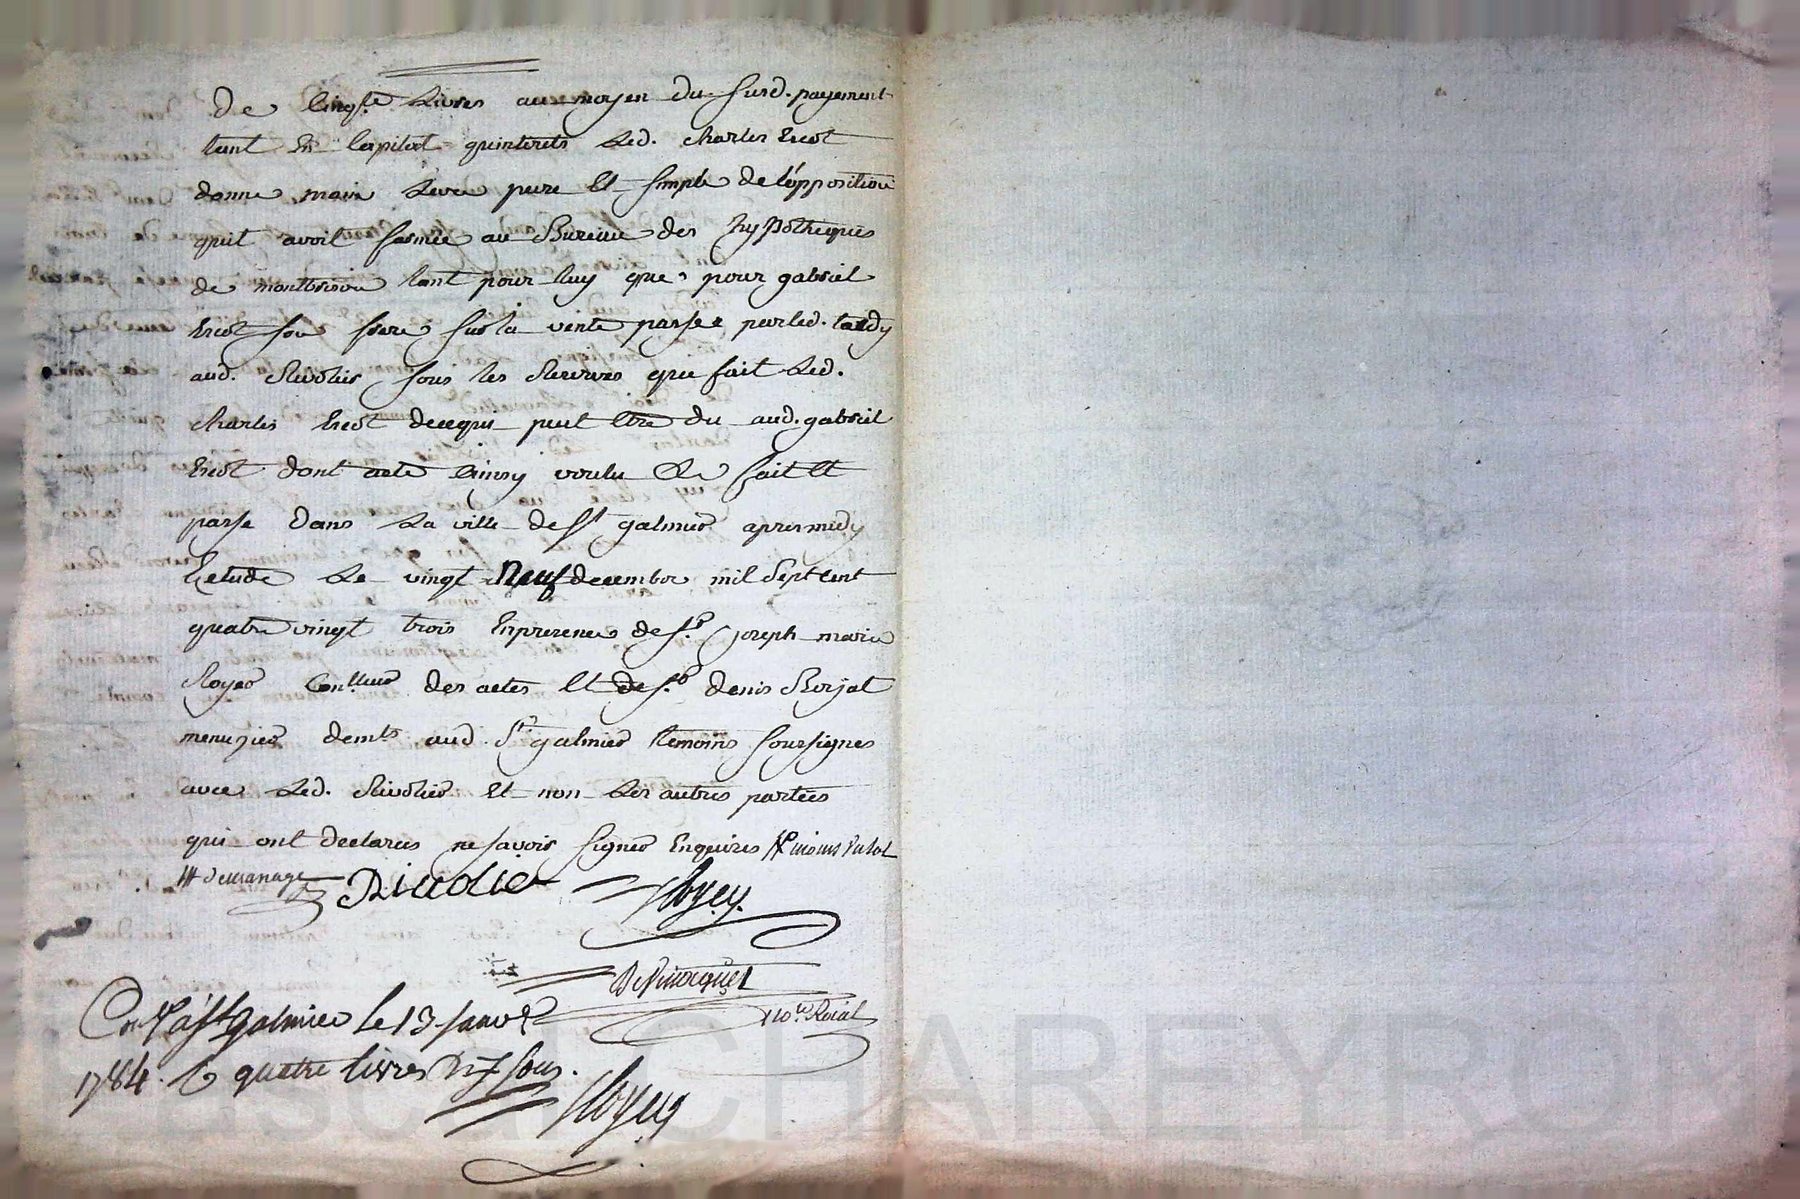 de cinqte Livres au moyen du susd. payement
tant En Capital quinterets Led. charles
donne main Levée pure Et simple de l'opposition
quil avoit formée au Bureau des hypotheques
de montbrison tant pour luy que pour gabriel
son frere sur la vente passée par led. tardy
aud. Rivolier sous les Reserves que fait Led.
charles decequi peut Etre du aud. gabriel
dont acte Ainsy voulu fait Et
passé dans La ville de St galmier apres midy
Etude Le vingt Neuf decembre mil sept cent
quatre vingt trois En presence de Sr. joseph marie
Royer Conlleur des actes Et de Sr. denis
menuzier demts aud. St galmier temoins soussignes
avec Led. Rivolier Et non Les autres parties
qui ont declarées ne savoir signer Enquises
Rivolier Royer
Nore Roial
Conlé à St galmier le 13 janvr
1784. quatre livres sous.
Royer
Pascal CHAREYRON